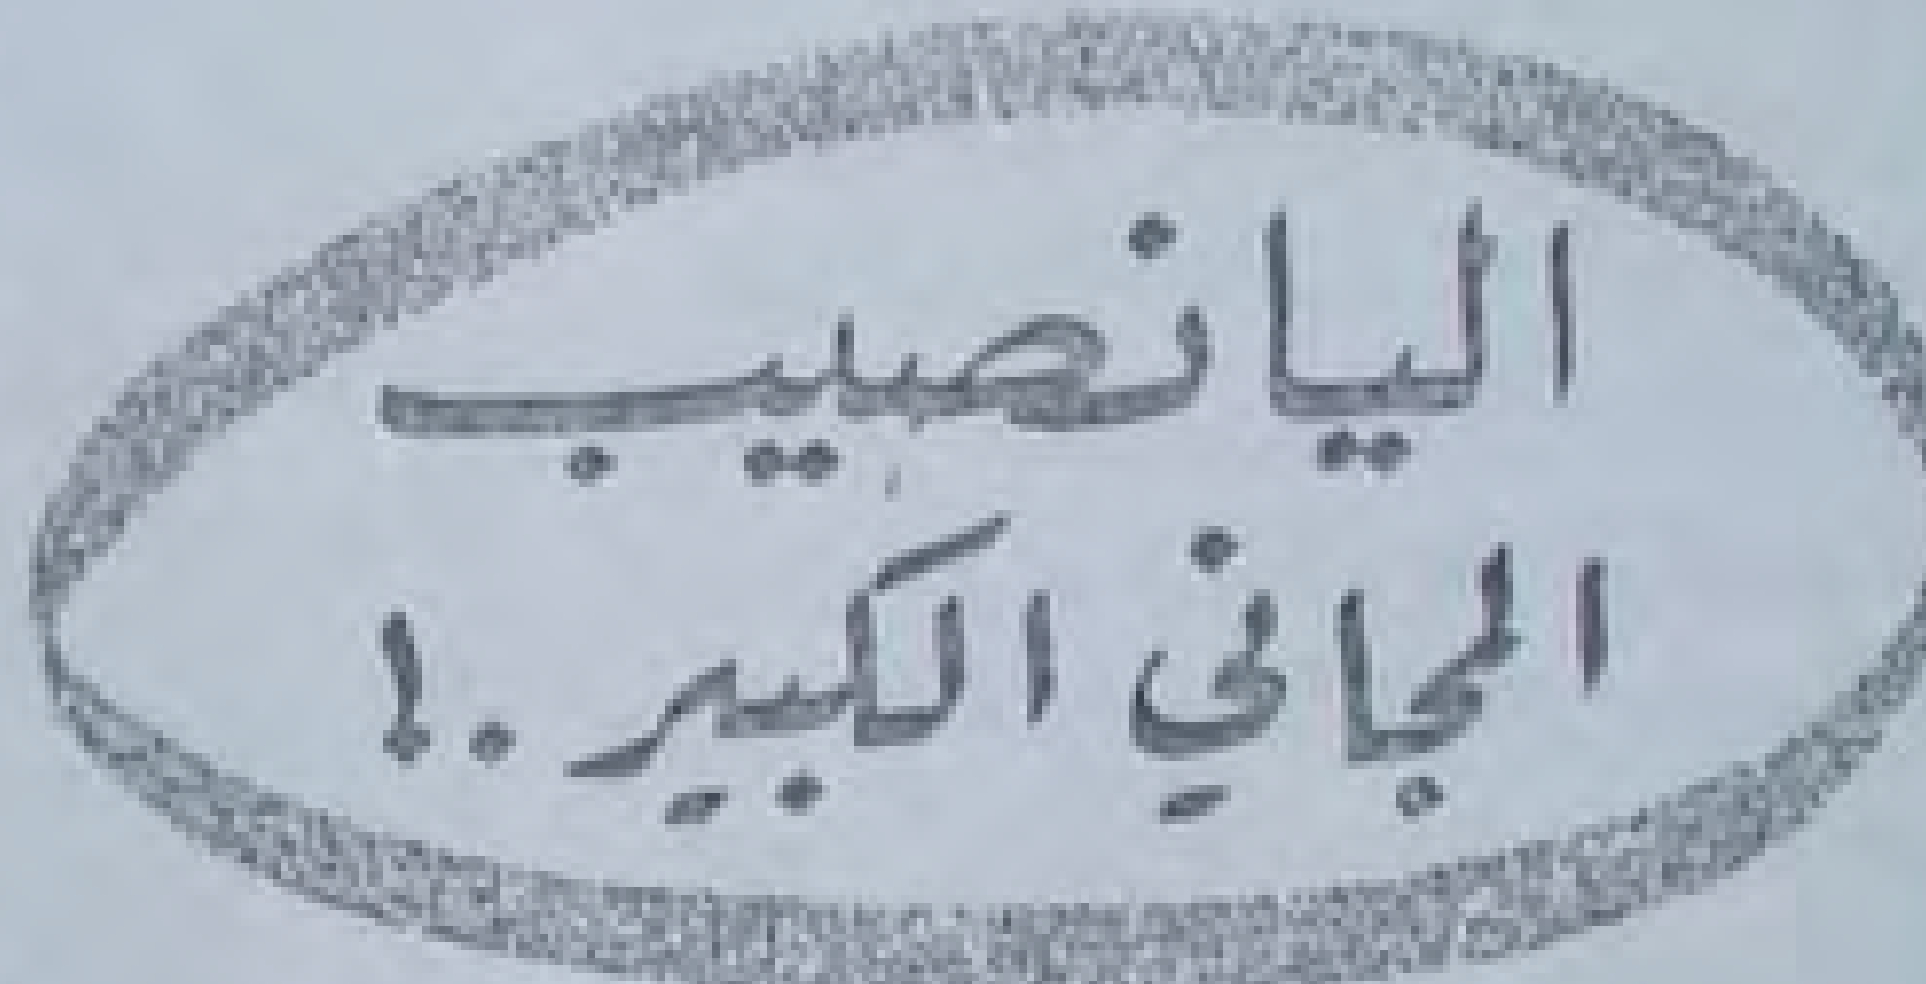 اليانصيب
المجاني الكبير .!